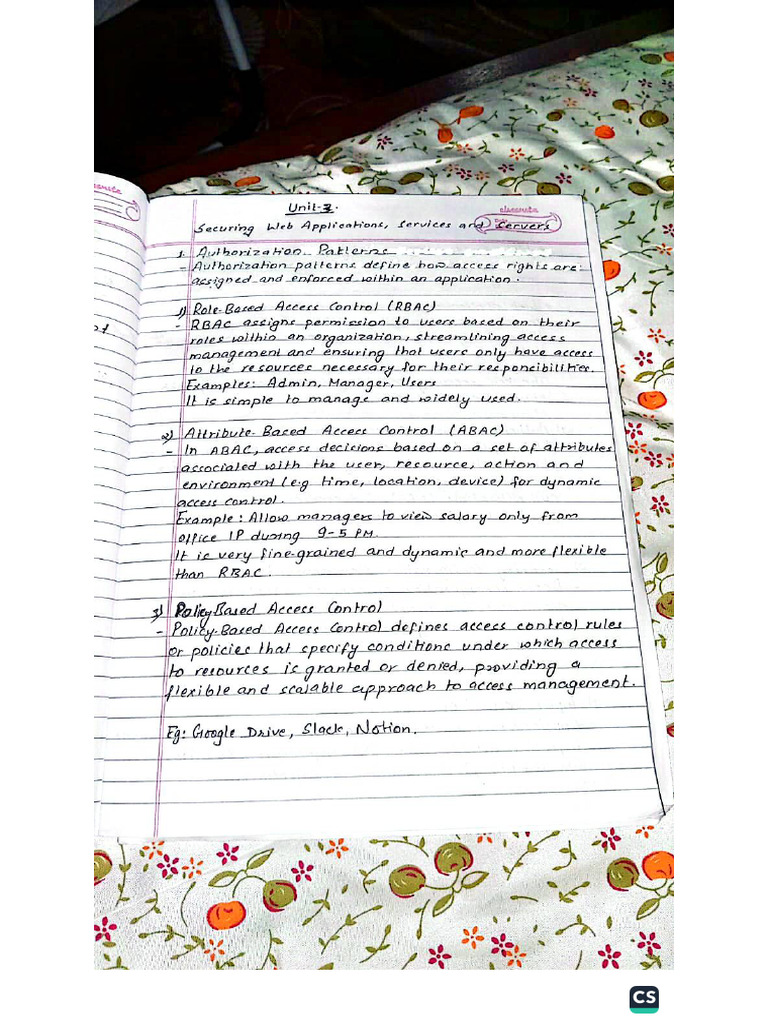 Unit-3.
classmate
Securing Web Applications, Services and Servers
1. Authorization Patterns
- Authorization patterns define how access rights are
assigned and enforced within an application.
1) Role-Based Access Control (RBAC)
- RBAC assigns permission to users based on their
roles within an organization, streamlining access
management and ensuring that users only have access
to the resources necessary for their responcibilities.
Examples: Admin, Manager, Users
It is simple to manage and widely used.
2) Attribute-Based Access Control (ABAC)
- In ABAC, access decisions based on a set of attributes
associated with the user, resource, action and
environment (e.g time, location, device) for dynamic
access control.
Example: Allow managers to view salary only from
office IP during 9-5 PM.
It is very fine-grained and dynamic and more flexible
than RBAC.
3) Policy-Based Access Control
- Policy-Based Access Control defines access control rules
or policies that specify conditions under which access
to resources is granted or denied, providing a
flexible and scalable approach to access management.
Eg: Google Drive, Slack, Notion.
CS